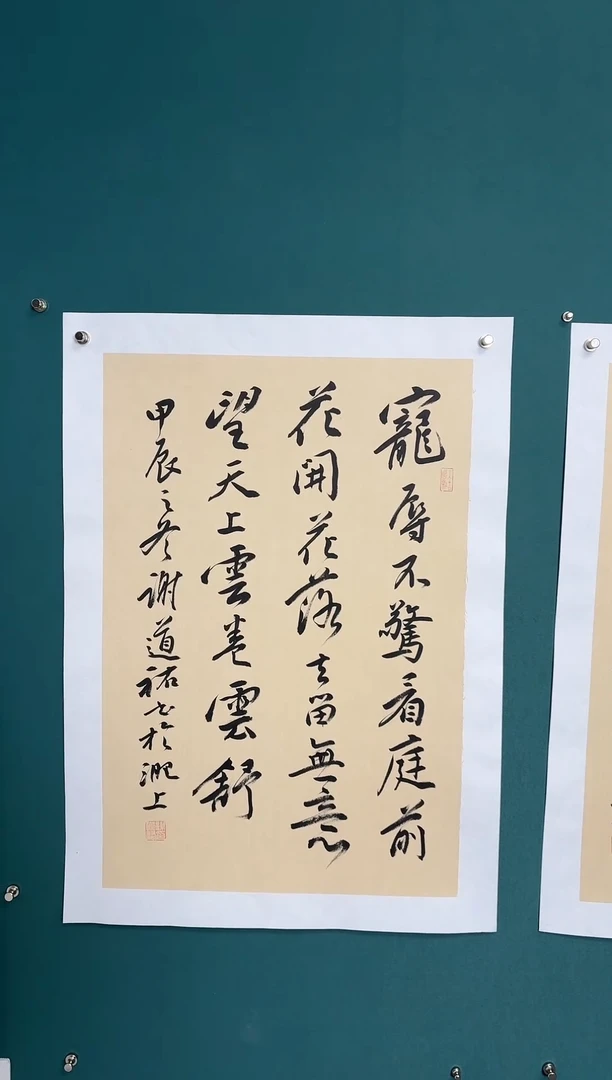 寵辱不驚看庭前
花開花落去留無意
望天上雲卷雲舒
甲辰之冬謝道祐書於淝上